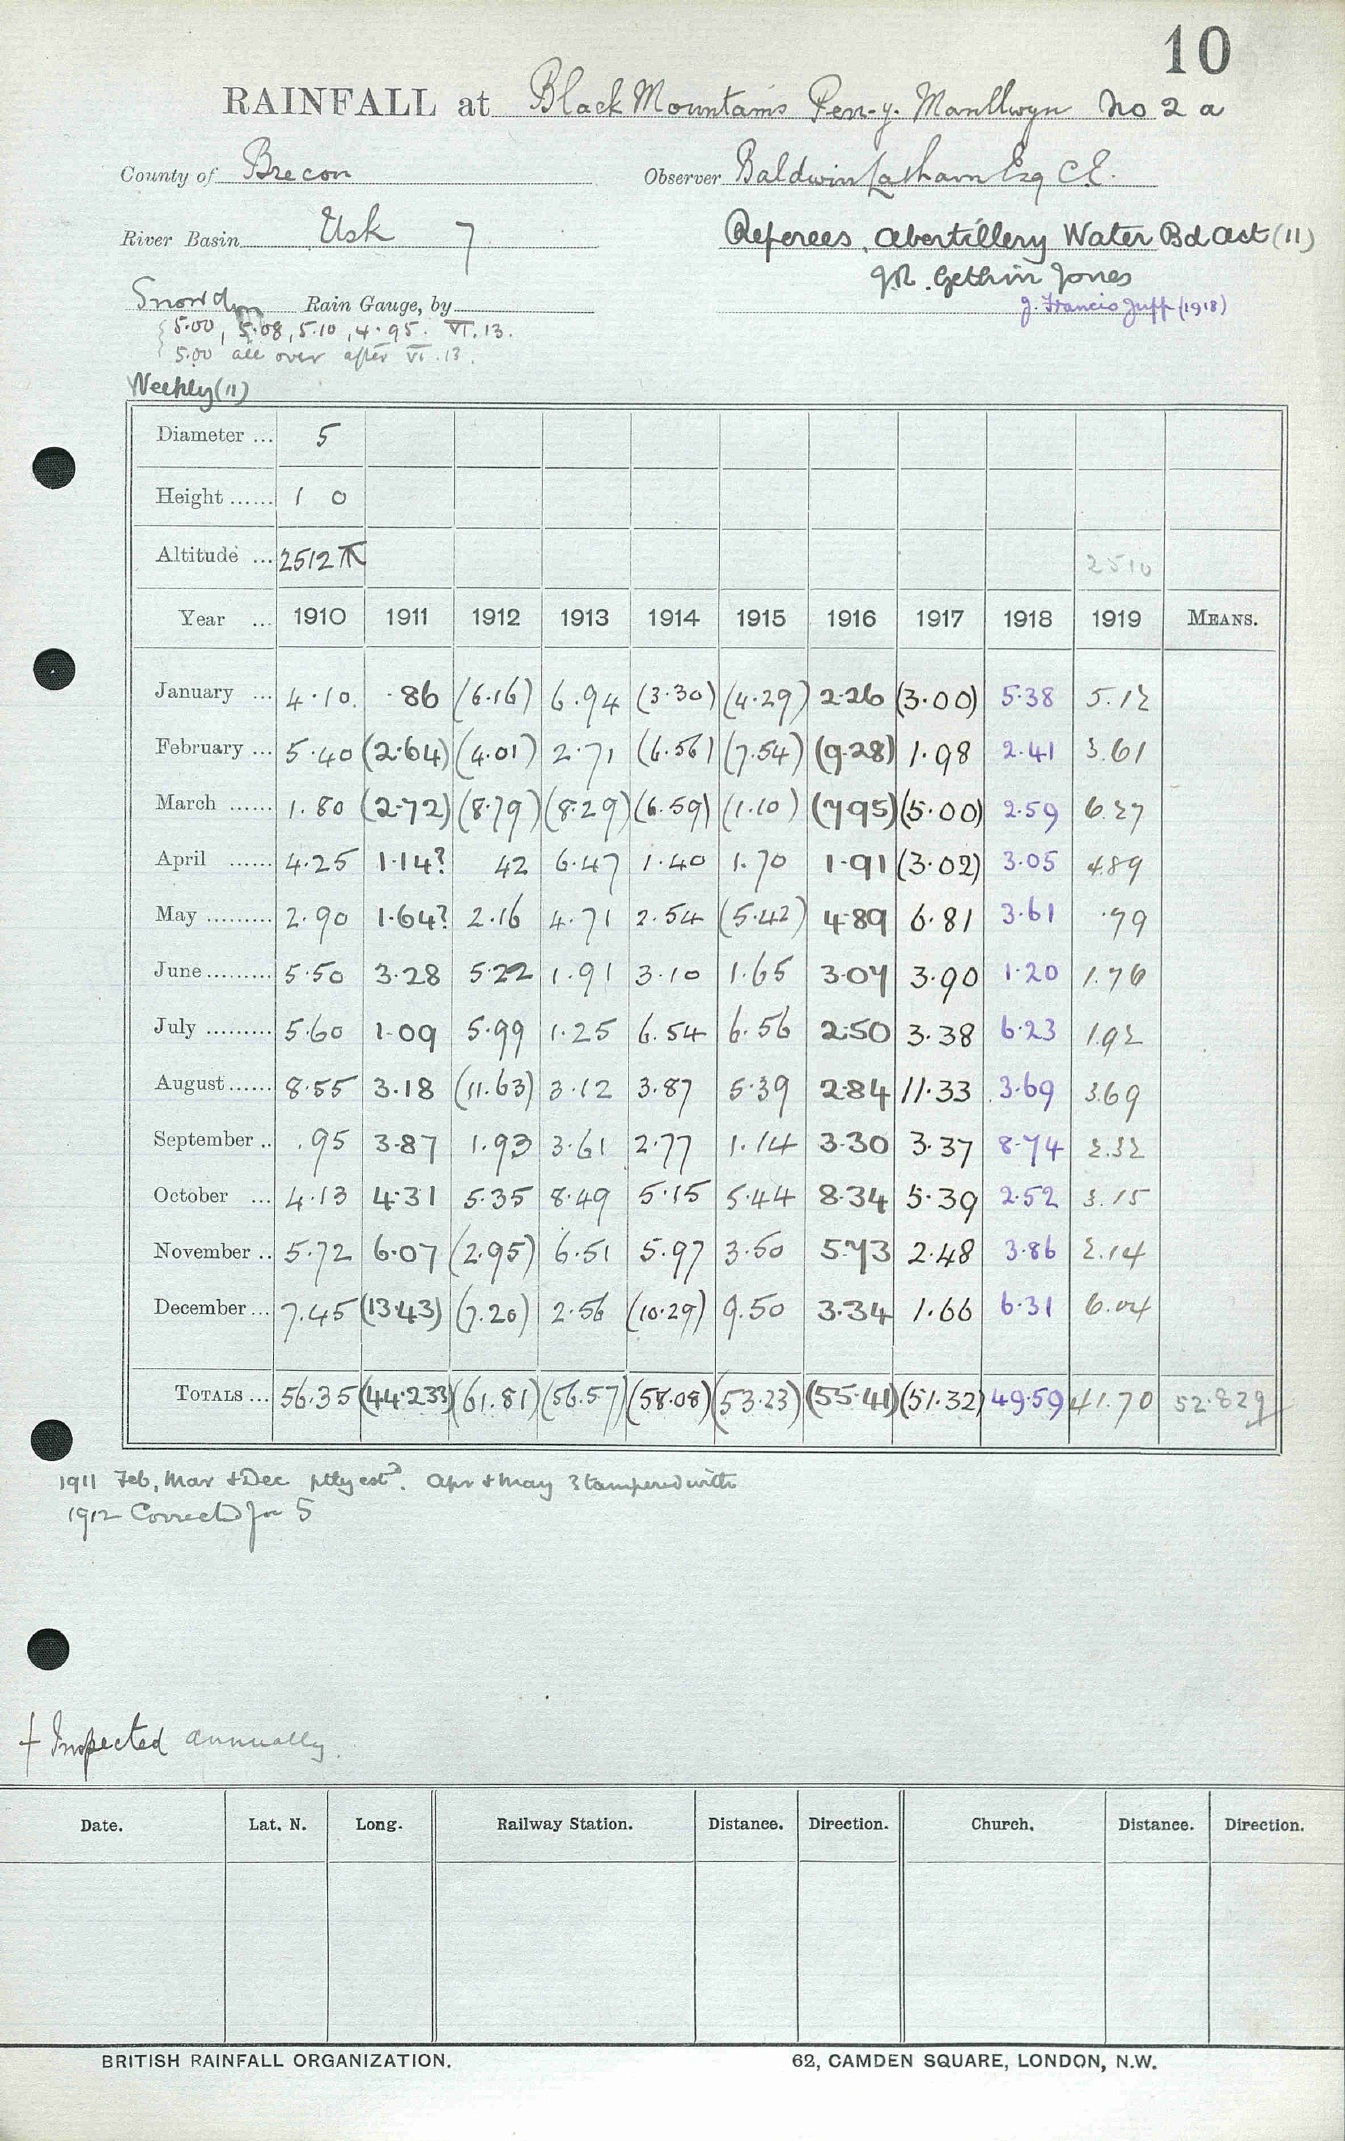 10
RAINFALL at Black Mountains Pen-y-Manllwyn No 2 a
County of Brecon Observer Baldwin Latham Esq C.E.
River Basin Usk 7 Referees, Abertillery Water Bd Act (11)
Gethin Jones
Snowdon Rain Gauge, by J. Francis Jupp (1918)
5.00, 5.08, 5.10, 4.95. VI.13.
5.00 all over after VI.13.
Weekly (11)
Diameter ... 5
Height ...... 1 0
Altitude ... 2512 2510
Year ... 1910 1911 1912 1913 1914 1915 1916 1917 1918 1919 MEANS.
January ... 4.10. .86 (6.16) 6.94 (3.30) (4.29) 2.26 (3.00) 5.38 5.12
February ... 5.40 (2.64) (4.01) 2.71 (6.56) (7.54) (9.28) 1.98 2.41 3.61
March ...... 1.80 (2.72) (8.79) (8.29) (6.59) (1.10) (7.95) (5.00) 2.59 6.27
April ...... 4.25 1.14? 42 6.47 1.40 1.70 1.91 (3.02) 3.05 4.89
May ......... 2.90 1.64? 2.16 4.71 2.54 (5.42) 4.89 6.81 3.61 .79
June ......... 5.50 3.28 5.22 1.91 3.10 1.65 3.07 3.90 1.20 1.76
July ......... 5.60 1.09 5.99 1.25 6.54 6.56 2.50 3.38 6.23 1.92
August ...... 8.55 3.18 (11.63) 3.12 3.87 5.39 2.84 11.33 3.69 3.69
September .. .95 3.87 1.93 3.61 2.77 1.14 3.30 3.37 8.74 2.32
October ... 4.13 4.31 5.35 8.49 5.15 5.44 8.34 5.39 2.52 3.15
November .. 5.72 6.07 (2.95) 6.51 5.97 3.50 5.73 2.48 3.86 2.14
December ... 7.45 (13.43) (7.20) 2.56 (10.29) 9.50 3.34 1.66 6.31 6.04
TOTALS ... 56.35 (44.233) (61.81) (56.57) (58.08) (53.23) (55.41) (51.32) 49.59 41.70 52.829
1911 Feb, Mar & Dec ptly estd. Apr & May ? tampered with
1912 Corrected for 5
† Inspected annually.
Date. Lat. N. Long. Railway Station. Distance. Direction. Church. Distance. Direction.
BRITISH RAINFALL ORGANIZATION. 62, CAMDEN SQUARE, LONDON, N.W.